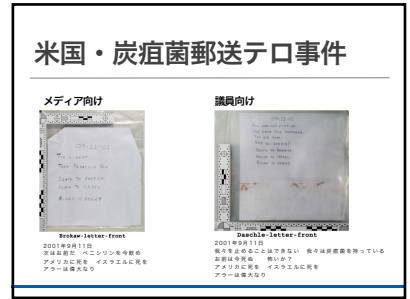 米国・炭疽菌郵送テロ事件
メディア向け
09-11-01
THIS IS NEXT
TAKE PENACILIN NOW
DEATH TO AMERICA
DEATH TO ISRAEL
ALLAH IS GREAT
Brokaw-letter-front
2001年9月11日
次はお前だ　ペニシリンを今飲め
アメリカに死を　イスラエルに死を
アラーは偉大なり
議員向け
09-11-01
YOU CAN NOT STOP US.
WE HAVE THIS ANTHRAX.
YOU DIE NOW.
ARE YOU AFRAID?
DEATH TO AMERICA.
DEATH TO ISRAEL.
ALLAH IS GREAT.
Daschle-letter-front
2001年9月11日
我々を止めることはできない　我々は炭疽菌を持っている
お前は今死ぬ　怖いか？
アメリカに死を　イスラエルに死を
アラーは偉大なり